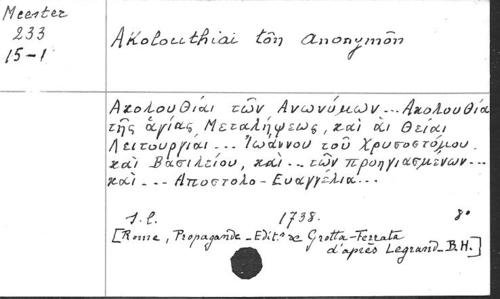 Meester
233
15-1
Akolouthiai tōn anonymōn
Ακολουθίαι τῶν Ανωνύμων... Ακολουθία
τῆς ἁγίας Μεταλήψεως, καὶ ἁι Θείαι
Λειτουργίαι... Ἰωάννου τοῦ Χρυσοστόμου
καὶ Βασιλείου, καὶ... τῶν προηγιασμένων...
καὶ... Αποστολο-Ευαγγέλια...
S.l. 1738. 8°
[Rome, Propagande - Edit.ⁿ de Grotta-Ferrata
d'après Legrand - B.H.]